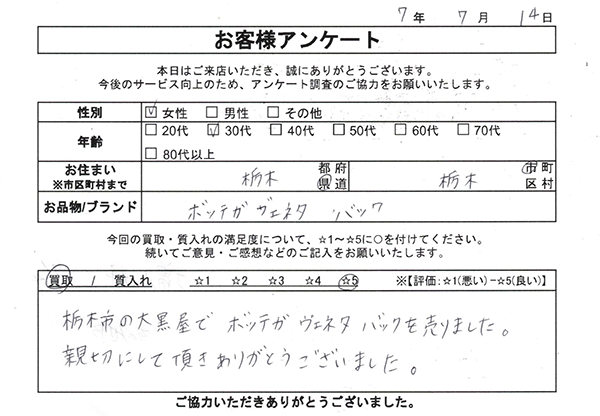 7年 7月 14日
お客様アンケート
本日はご来店いただき、誠にありがとうございます。
今後のサービス向上のため、アンケート調査のご協力をお願いいたします。
性別 ☑ 女性 □ 男性 □ その他
年齢 □ 20代 ☑ 30代 □ 40代 □ 50代 □ 60代 □ 70代
□ 80代以上
お住まい 栃木 都 府 県 道 栃木 市 町 区 村
※市区町村まで
お品物/ブランド ボッテガ ヴェネタ バック
今回の買取・質入れの満足度について、☆1～☆5に○を付けてください。
続いてご意見・ご感想などのご記入をお願いいたします。
買取 / 質入れ ☆1 ☆2 ☆3 ☆4 ☆5 ※【評価:☆1(悪い)−☆5(良い)】
栃木市の大黒屋で ボッテガ ヴェネタ バックを売りました。
親切にして頂きありがとうございました。
ご協力いただきありがとうございました。